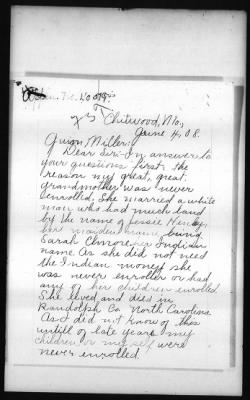 Chitwood, Mo.,
June 4, 08.
Guion Miller:
Dear Sir - In answer to
your questions first the
reason my great, great,
grandmother was never
enrolled. She married a white
man who had much land
by the name of Jessie Henly,
her maiden name being
Sarah Elmore her English
name. As she did not need
the Indian money she
was never enrolled or had
any of her children enrolled
She lived and died in
Randolph Co. North Carolina
As I did not know of this
untill of late years my
children or myself were
never enrolled